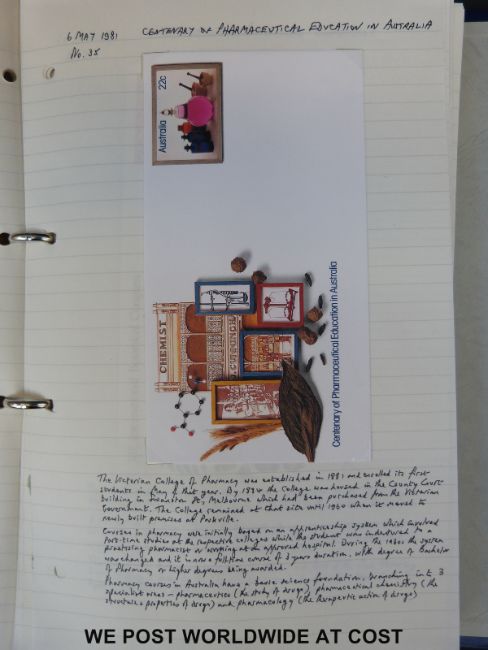 6 MAY 1981 CENTENARY OF PHARMACEUTICAL EDUCATION IN AUSTRALIA
No. 35
Australia 22c
CHEMIST
Centenary of Pharmaceutical Education in Australia
The Victorian College of Pharmacy was established in 1881 and enrolled its first
students in May of that year. By 1890 the College was housed in the County Court
building in Swanston St, Melbourne which had been purchased from the Victorian
Government. The College remained at that site until 1960 when it moved to
newly built premises at Parkville.
Courses in pharmacy were initially based on an apprenticeship system which involved
part-time studies at the respective colleges while the student was indentured to a
practising pharmacist or working at an approved hospital. During the 1960s the system
was changed and it is now a full time course of 3 years duration, with degree of Bachelor
of Pharmacy or higher degrees being awarded.
Pharmacy courses in Australia have a basic science foundation, branching into 3
specialist areas - pharmaceutics (the study of drugs), pharmaceutical chemistry (the
structure & properties of drugs) and pharmacology (the therapeutic action of drugs)
WE POST WORLDWIDE AT COST